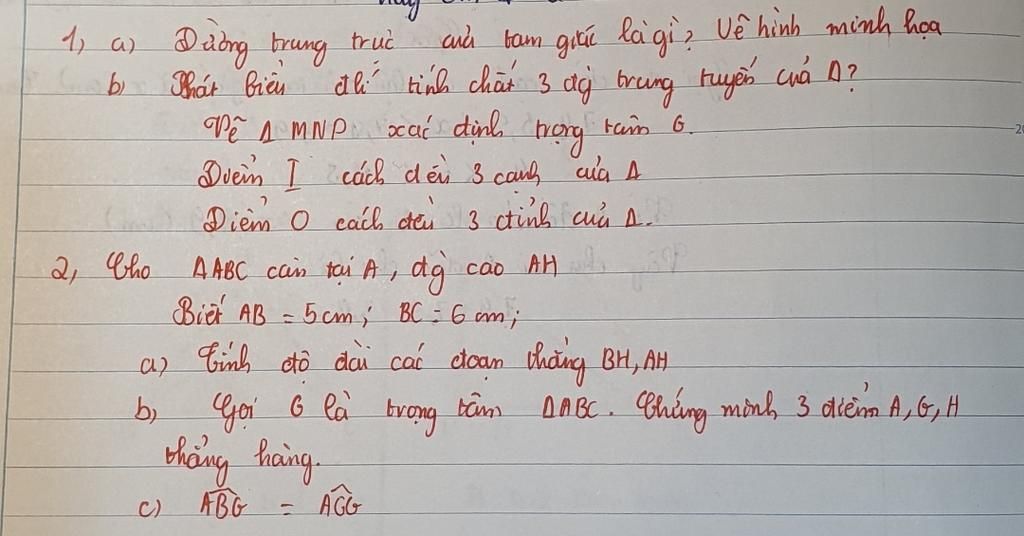 1, a) Đường trung trực của tam giác là gì? Vẽ hình minh họa
b, Phát biểu đlí tính chất 3 đg trung tuyến của Δ?
Vẽ Δ MNP xác định trọng tâm G.
Điểm I cách đều 3 cạnh của Δ
Điểm O cách đều 3 đỉnh của Δ.
2, Cho ΔABC cân tại A, đg cao AH
Biết AB = 5cm; BC = 6 cm;
a) Tính độ dài các đoạn thẳng BH, AH
b, Gọi G là trọng tâm ΔABC. Chứng minh 3 điểm A, G, H
thẳng hàng.
c) ABG = ACG